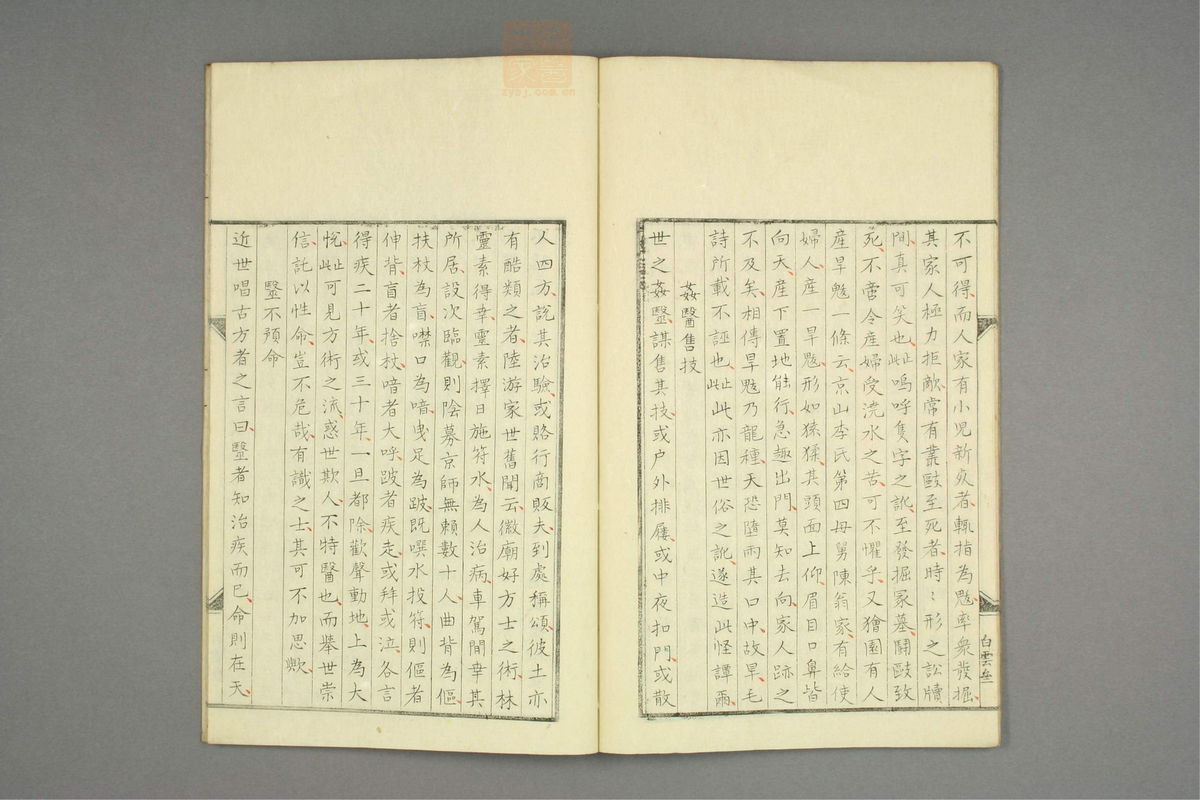 不可得、而人家有小児新歿者、輒指為魃、率衆發掘、
其家人極力拒敵、常有叢毆至死者、時〻形之訟牘
間、真可笑也、嗚呼隻字之訛、至發掘冢墓、鬪毆致
死、不啻令産婦受澆水之苦、可不懼乎、又獪園有人
産旱魃一條云、京山李氏第四母舅陳翁家、有給使
婦人、産一旱魃、形如猿猱、其頭面上仰、眉目口鼻皆
向天、産下置地能行、急趣出門、莫知去向、家人跡之
不及矣、相傳旱魃乃龍種、天恐墮雨其口中、故旱、毛
詩所載不誣也、此亦因世俗之訛、遂造此怪譚爾、
姦醫售技
世之姦毉、謀售其技、或户外排屨、或中夜扣門、或散
白雲
人四方、説其治驗、或賂行商販夫、到處稱頌、彼土亦
有酷類之者、陸游家世舊聞云、徽廟好方士之術、林
靈素得幸、靈素擇日施符水、為人治病、車駕間幸其
所居、設次臨觀、則陰募京師無賴數十人、曲背為傴、
扶杖為盲、噤口為喑、曳足為跛、既噀水投符、則傴者
伸背、盲者捨杖、喑者大呼、跛者疾走、或拜或泣、各言
得疾二十年、或三十年、一旦都除、歡聲動地、上為大
悅、此可見方術之流、惑世欺人、不特醫也、而舉世崇
信、託以性命、豈不危哉、有識之士、其可不加思歟、
毉不預命
近世唱古方者之言曰、毉者知治疾而已、命則在天、
zysj.com.cn